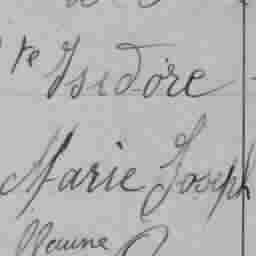 te Isidore
Marie Joseph